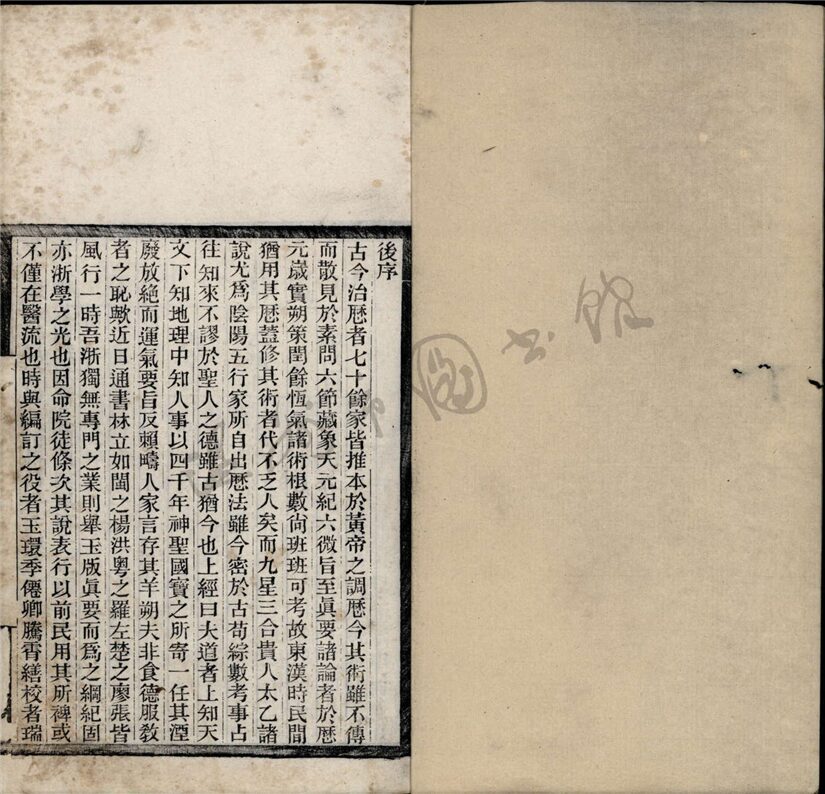 後序
古今治曆者七十餘家皆推本於黃帝之調曆今其術雖不傳
而散見於素問六節藏象天元紀六微旨至眞要諸論者於曆
元歲實朔策閏餘恆氣諸術根數尙班班可考故東漢時民間
猶用其曆蓋修其術者代不乏人矣而九星三合貴人太乙諸
說尤爲陰陽五行家所自出曆法雖今密於古苟綜數考事占
往知來不謬於聖人之德雖古猶今也上經曰夫道者上知天
文下知地理中知人事以四千年神聖國寶之所寄一任其湮
廢放絶而運氣要旨反賴疇人家言存其羊朔夫非食德服敎
者之恥歟近日通書林立如閩之楊洪粵之羅左楚之廖張皆
風行一時吾浙獨無專門之業則舉玉版眞要而爲之綱紀固
亦浙學之光也因命院徒條次其說表行以前民用其所裨或
不僅在醫流也時與編訂之役者玉環季僊卿騰霄繕校者瑞
圖書館